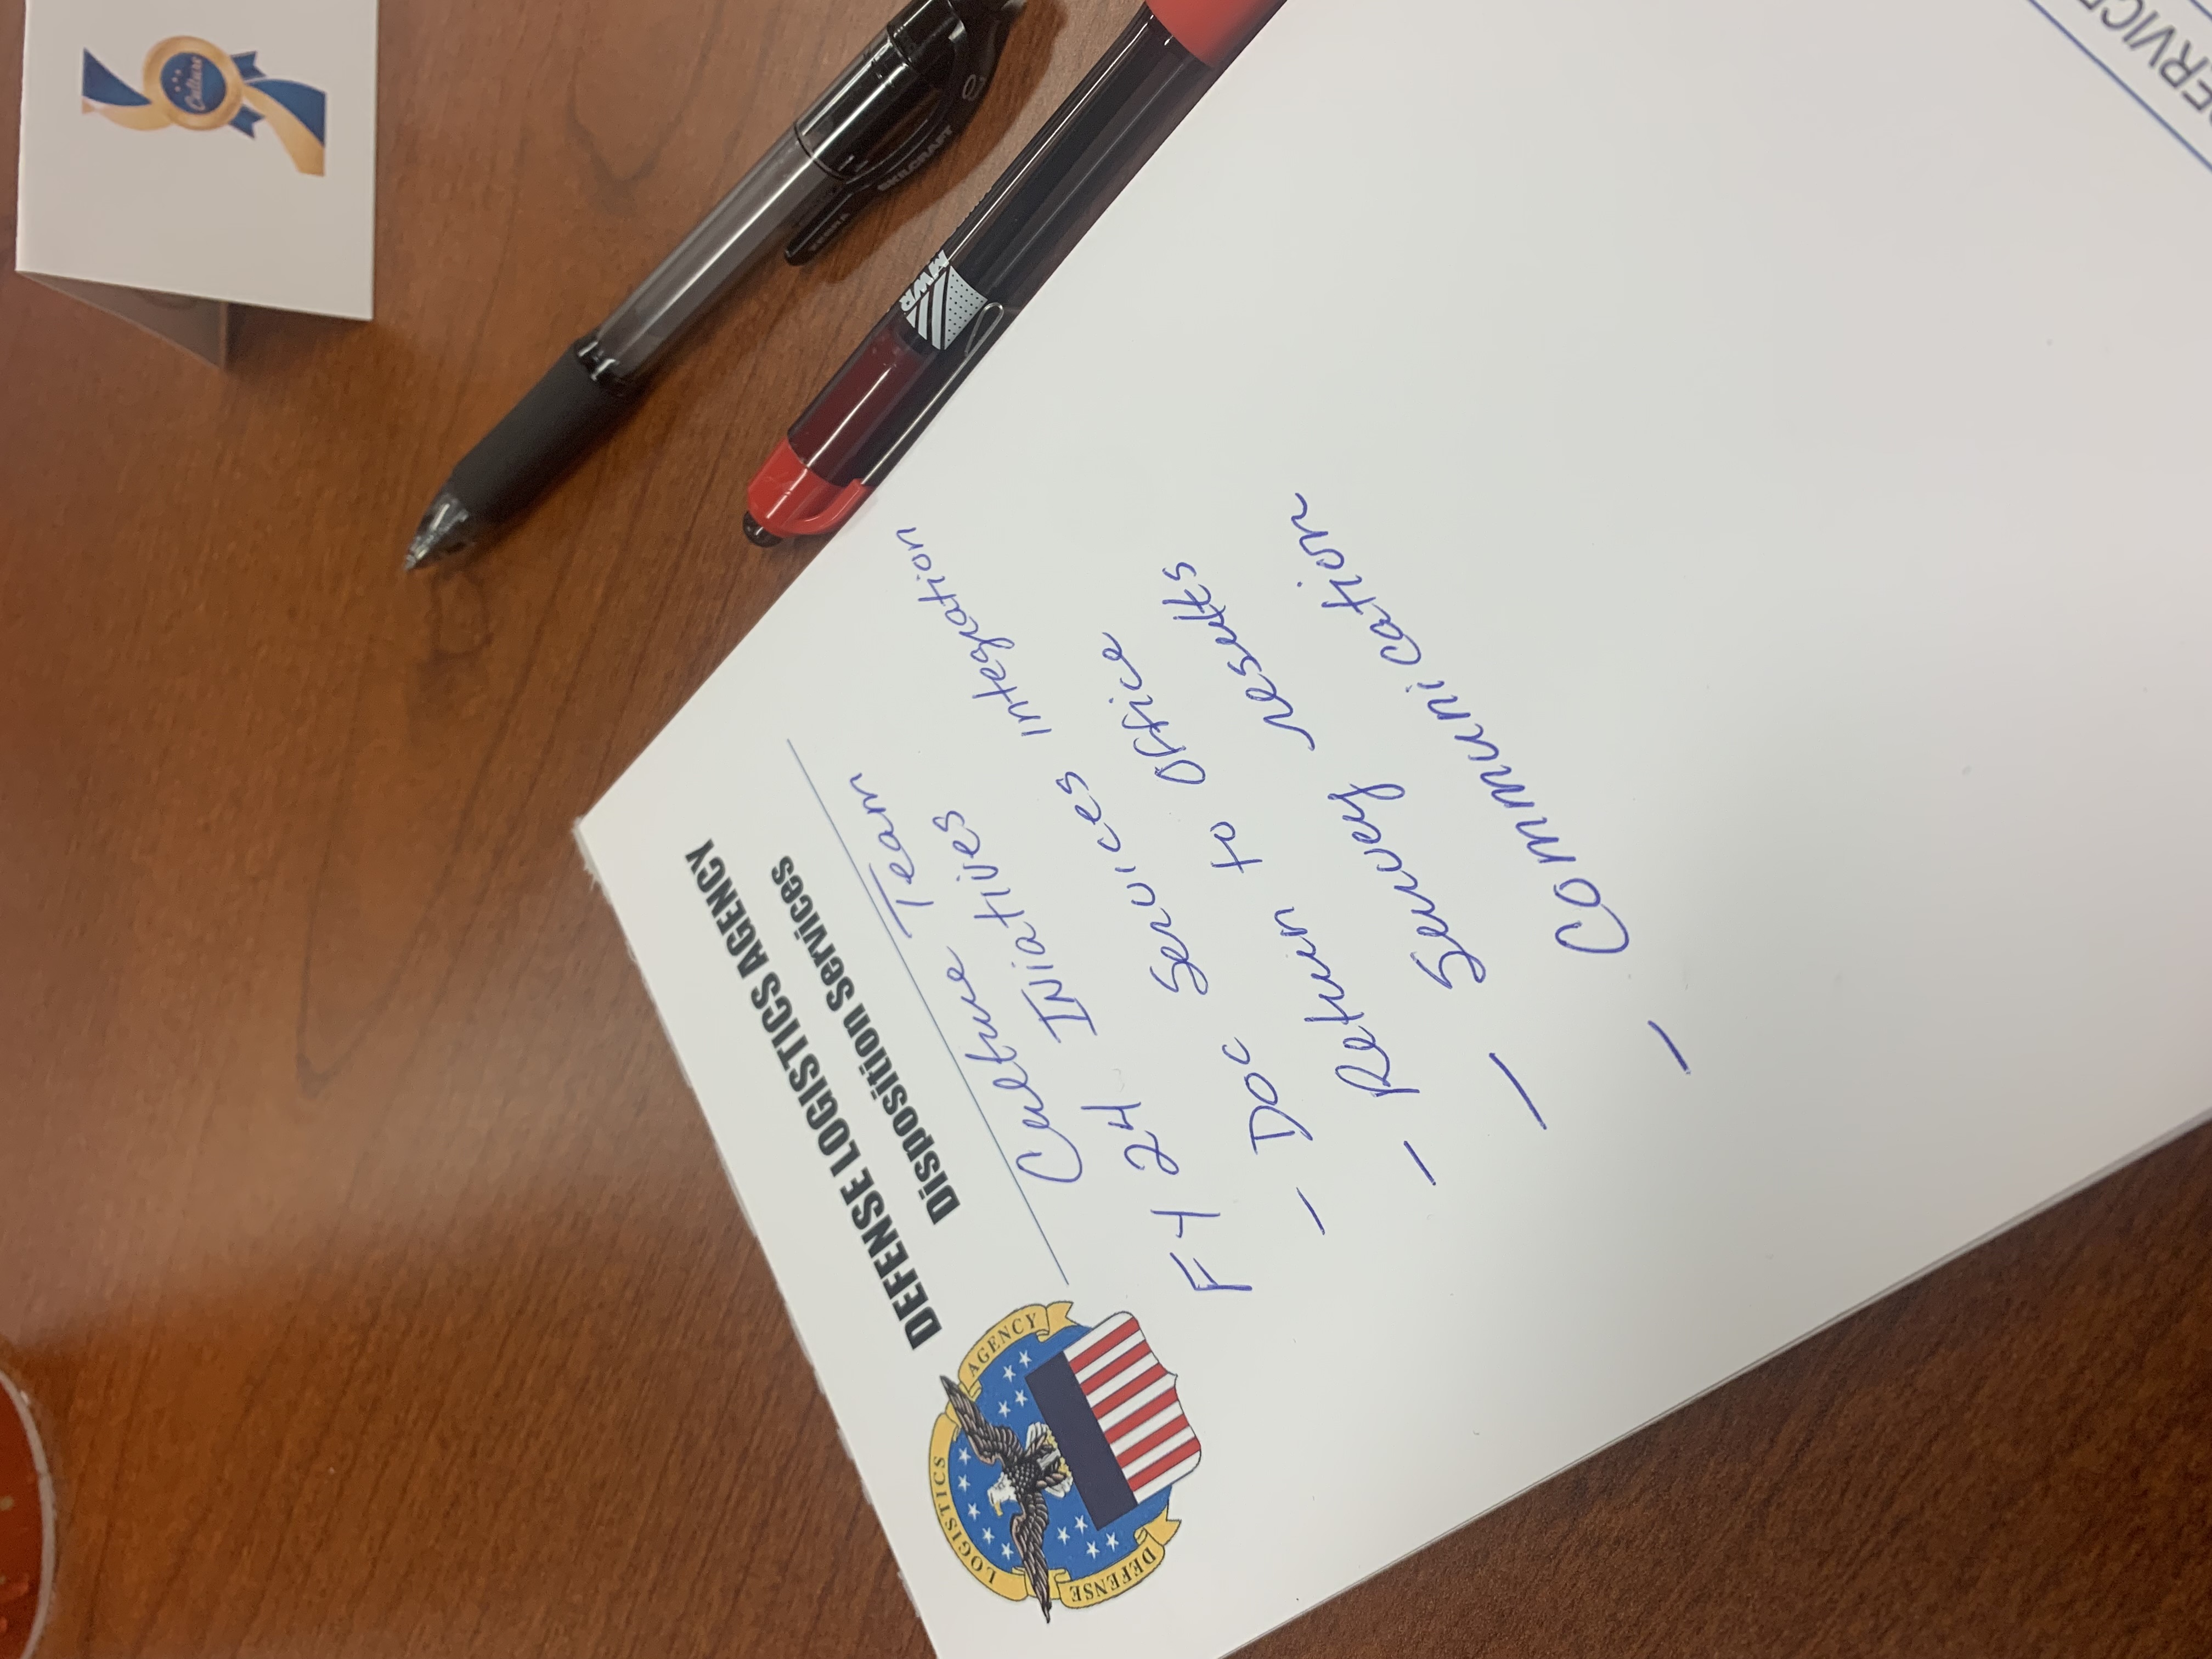 DEFENSE LOGISTICS AGENCY
Disposition Services
DEFENSE LOGISTICS AGENCY
Culture Team
FY 24 INiatives
- Doc Services integration
- Return to Office
- Survey results
- Communication
Culture
SKILCRAFT
ZEBRA
MWR